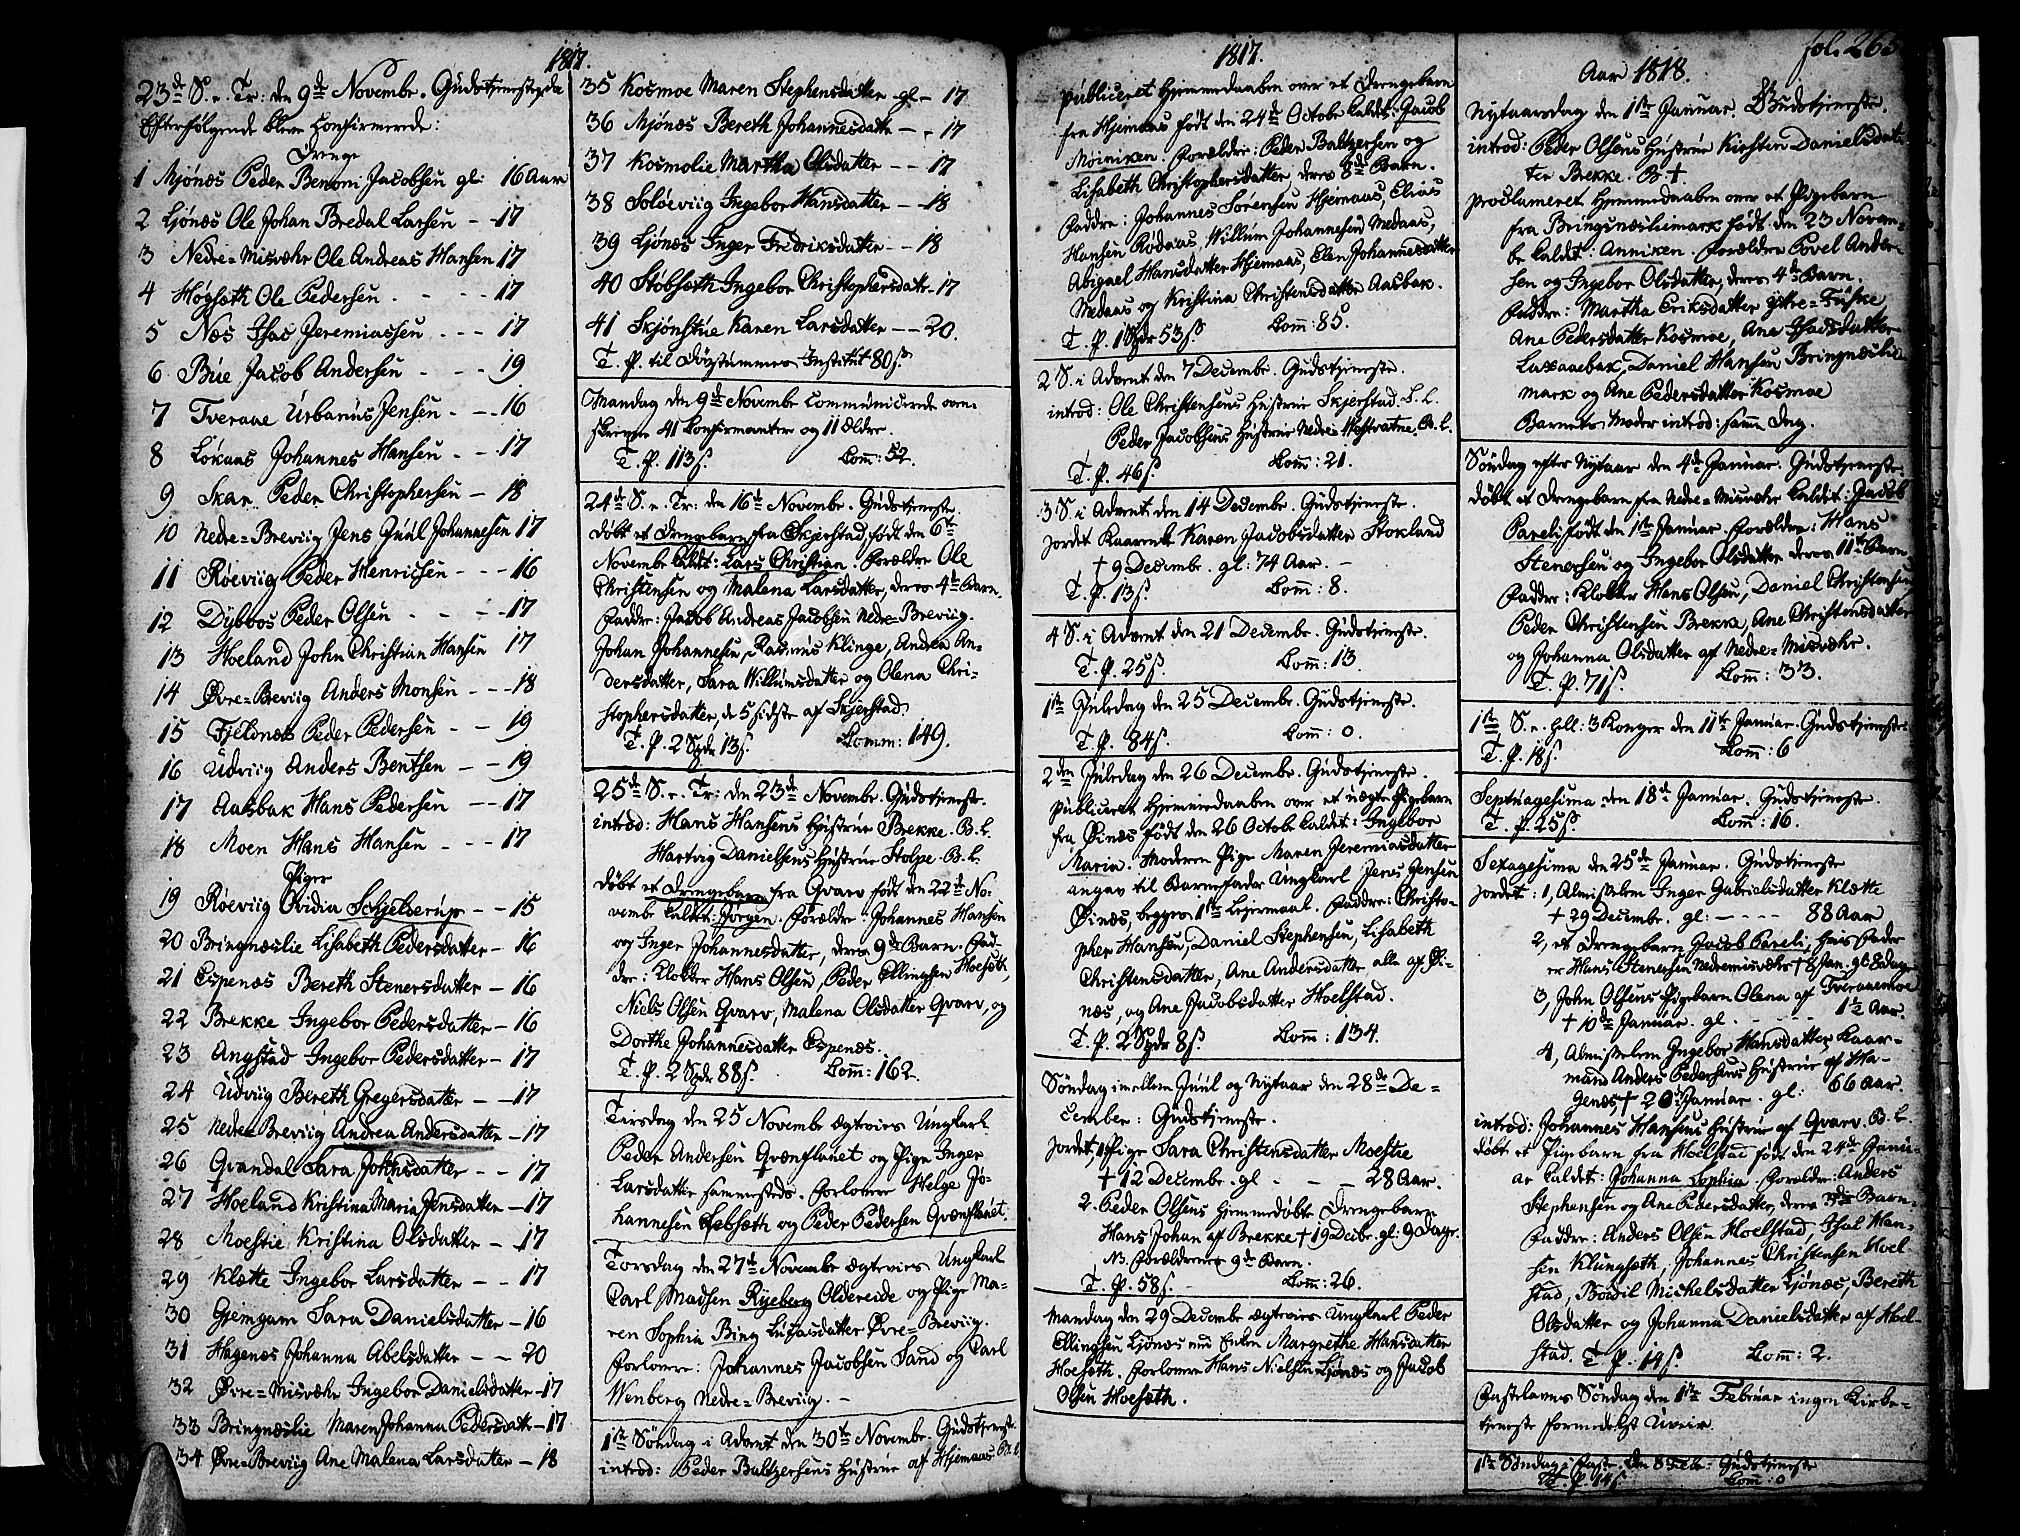 1817.
23de S. e. Tr: den 9de Novembr. Gudstjeneste da
Efterfølgende bleve Confirmerede:
Drenge
1 Mjönæs Peder Benoni Jacobsen gl: 16 Aar
2 Ljönæs Ole Johan Bredal Larsen — 17
3 Nedre=Misvæhr Ole Andreas Hansen 17
4 Høgseth Ole Pedersen . - - - 17
5 Næs Isac Jeremiassen - - - 17
6 Bue Jacob Andersen - - - 19
7 Tveraae Urbanus Jensen - - 16
8 Løkaas Johannes Hansen - - 17
9 Skar Peder Christophersen — 18
10 Nedre=Breviig Jens Juul Johannesen 17
11 Røeviig Peder Henricsen - - - 16
12 Dybvos Peder Olsen - - - 17
13 Hoeland John Christian Hansen 17
14 Øvre=Breviig Anders Monsen - - - 18
15 Fjeldnæs Peder Pedersen - - 19
16 Udviig Anders Bentsen - - 19
17 Aasbak Hans Pedersen - - 17
18 Moen Hans Hansen - - - 17
Piger
19 Røeviig Ovidia Schjelderup - - 15
20 Bringnæslie Lisabeth Pedersdatter - 16
21 Espenæs Bereth Stenersdatter - 16
22 Brekke Ingebor Pedersdatter - 16
23 Angstad Ingebor Pedersdatter - 17
24 Udviig Bereth Gregersdatter - - 17
25 Nedre=Breviig Andrea Andersdatter - 17
26 Qvandal Sara Johnsdatter - - 17
27 Hoeland Kristina Maria Jensdatter - 17
28 Moestie Kristina Olsdatter - - 17
29 Klætte Ingebor Larsdatter - - 17
30 Gjemgam Sara Danielsdatter - 16
31 Hagenæs Johanna Abelsdatter - - 20
32 Øvre=Misvæhr Ingebor Danielsdatter - 17
33 Bringnæslie Maren Johanna Pedersdatt - 17
34 Øvre=Breviig Ane Malena Larsdatter - 18
35 Kosmoe Maren Stephensdatter gl - 17
36 Mjönæs Bereth Johannesdatte - - 17
37 Kosmolie Martha Olsdatter - - 17
38 Soløeviig Ingebor Hansdatter - - 18
39 Ljönæs Inger Fredriksdatter - - 18
40 Støbseth Ingebor Christophersdatr - 17
41 Skjönstue Karen Larsdatter - - 20.
T. P. til Døvstummes Institut 80 s.
Mandag den 9de Novembr Communicerede oven-
skrevne 41 Confirmanter og 11 Ældre.
T. P. 113 s. Com̄: 52.
24de S. e. Tr: den 16de Novembr. Gudstjeneste.
Døbt et Drengebarn fra Skjerstad, født den 6te
Novembr kaldet: Lars Christian. Forældre Ole
Christensen og Malena Larsdatter, deres 4de Barn.
Faddre: Jacob Andreas Jacobsen Nedre-Breviig.
Johan Johannesen, Rasmus Klinge, Andrea An-
dersdatter, Sara Willumsdatter og Olena Chri-
stophersdatter, de 5 sidste af Skjerstad.
T. P. 2 Spdr 13 s. Comm: 149.
25de S. e. Tr: den 23de Novembr. Gudstjeneste.
introd: Hans Hansens Hustrue Brekke. B. L.
Hartvig Danielsens Hustrue Stolpe. B. L.
Døbt et Drengebarn fra Qvarv født den 22de No-
vembr kaldet: Jørgen. Forældre: Johannes Hansen
og Inger Johannesdatter, deres 9de Barn. Fad-
dre: Klokker Hans Olsen, Peder Ellingsen Hoeseth,
Niels Olsen Qvarv, Malena Olsdatter Qvarv, og
Dorthe Johannesdatter Espenæs.
T. P. 2 Spdr 88 s. Com̄: 162.
Tirsdag den 25 Novembr ægtevies Ungkarl
Peder Andersen Qvænflanet og Pige Inger
Larsdatter sammesteds. Forlovere Helge Jo-
hannesen Løbseth og Peder Pedersen Qvænflanet.
Torsdag den 27de Novembr ægtevies Ungkarl
Carl Madsen Ryeberg Oldereide og Pige Ma-
ren Sophia Bing Lucasdatter Øvre-Breviig.
Forlovere: Johannes Jacobsen Sand og Carl
Wenberg Nedre=Breviig. —
1ste Søndag i Advent den 30te Novembr. Gudstjeneste
introd: Peder Baltzersens Hustrue af Hjemaas B. L.
1817.
publiceret Hjemmedaaben over et Drengebarn
fra Hjemaas født den 24de Octobr kaldt: Jacob
Moiniken. Forældre: Peder Baltzersen og
Lisabeth Christophersdatter, deres 8de Barn.
Faddre: Johannes Sørensen Hjemaas, Elias
Hansen Rødaas, Willum Johannesen Medaas,
Abigael Hansdatter Hjemaas, Elen Johannesdatter
Medaas og Kristina Christensdatter Aasbak.
T. P. 1 Spdr 53 s. Com̄: 85.
2 S. i Advent den 7 Decembr. Gudstjeneste.
introd: Ole Christensens Hustrue Skjerstad. B. L.
Peder Jacobsens Hustrue Nedre Westvatne. B. L.
T. P. 46 s. Com̄: 21.
3 S. i Advent den 14 Decembr. Gudstjeneste.
Jordet Kaarenke Karen Jacobsdatter Stokland
† 9 Decembr. gl: 74 Aar. —
T. P. 13 s. Com̄: 8.
4 S. i Advent den 21 Decembr. Gudstjeneste.
T. P. 25 s. Com̄: 13.
1ste Juledag den 25 Decembr. Gudstjeneste.
T. P. 84 s. Com̄: 0.
2den Juledag den 26 Decembr. Gudstjeneste.
publiceret Hjemmedaaben over et uægte Pigebarn
fra Øinæs født den 26 Octobr kaldet: Ingebor
Maria. Moderen Pige Maren Jeremiasdatter
angav til Barnefader Ungkarl Jens Jensen
Øinæs, begges 1ste Lejermaal. Faddre: Christo-
pher Hansen, Daniel Stephensen, Lisabeth
Christensdatter, Ane Andersdatter alle af Øi-
næs, og Ane Jacobsdatter Hoelstad.
T. P. 2 Spdr 8 s. Com̄: 134.
Søndag imellem Juul og Nytaar den 28de De=
cember: Gudstjeneste.
Jordet, 1 Pige Sara Christensdatter Moestie
† 12 Decembr. gl - - - 28 Aar.
2. Peder Olsens hjemmedøbte Drengebarn
Hans Johan af Brekke † 19 Decbr. gl: 9 Dage.
NB Forældrenes 9de Barn.
T. P. 58 s. Com̄: 26.
Mandag den 29 Decembr ægtevies Ungkarl Peder
Ellingsen Ljönæs med Enken Margrethe Hansdatter
Hoeseth. Forlovere Hans Nielsen Ljönæs og Jacob
Olsen Hoeseth.
fol. 263
Aar 1818.
Nytaarsdag den 1ste Januar. Gudstjeneste.
introd: Peder Olsens Hustrue Kirsten Danielsdat-
ter Brekke. B. †
proclameret Hjemmedaaben over et Pigebarn
fra Bringnæsliemark født den 23 Novem-
br kaldet: Anniken. Forældre Povel Ander-
sen og Ingebor Olsdatter, deres 4de Barn.
Faddre: Martha Eriksdatter Ytre=Fuske
Ane Pedersdatter Kosmoe, Ane Isacsdatter
Laxaaebak, Daniel Hansen Bringnæslie
mark og Ane Pedersdatter Kosmoe
Barnets Moder introd: samme Dag.
Søndag efter Nytaar den 4de Januar. Gudstjeneste.
Døbt et Drengebarn fra Nedre=Misvæhr kaldet: Jacob
Pareli født den 1ste Januar Forældre: Hans
Stenersen og Ingebor Olsdatter deres 11te Barn.
Faddre: Klokker Hans Olsen, Daniel Christensen
Peder Christensen Brekke, Ane Christensdatter
og Johanna Olsdatter af Nedre=Misvæhr.
T. P. 71 s. Com̄: 33.
1ste S. e. hell: 3 Konger den 11te Januar. Gudstjeneste
T. P. 18 s. Com̄: 6
Septuagesima den 18de Januar. Gudstjeneste.
T. P. 25 s. Com̄: 16.
Sexagesima den 25de Januar. Gudstjeneste
Jordet: 1, Almisselem Inger Gabrielsdatter Klætte
† 29 Decembr. gl: - - - - 88 Aar
2, et Drengebarn Jacob Pareli, hvis Fader
er Hans Stenersen Nedremisvæhr † 8 Jan. gl: 8 Dage
3, John Olsens Pigebarn Olena af Tveraaemoe
† 10de Januar. gl - - - - 1 ½ Aar.
4, Almisselem Ingebor Hansdatter Kaar-
mand Anders Pedersens Hustrue af Ha-
genæs † 20 Januar. gl: 66 Aar.
introd: Johannes Hansens Hustrue af Qvarv. B. L.
Døbt et Pigebarn fra Hoelstad født den 24de Janu-
ar kaldet: Johanna Sophia. Forældre: Anders
Stephensen og Ane Pedersdatter, deres 3de Barn.
Faddre: Anders Olsen Hoelstad, Isac Han-
sen Klungseth, Johannes Christensen Hoel-
stad, Bodil Michelsdatter Ljönæs, Bereth
Olsdatter og Johanna Danielsdatter af Hoel-
stad. T. P. 14 s. Com̄: 2.
Fastelavns Søndag den 1ste Februar ingen Kirke-
tjeneste formedelst Uveir.
1ste Søndag i Faste. den 8 Febr: Gudstjeneste
T. P. 14 s. Com̄: 0